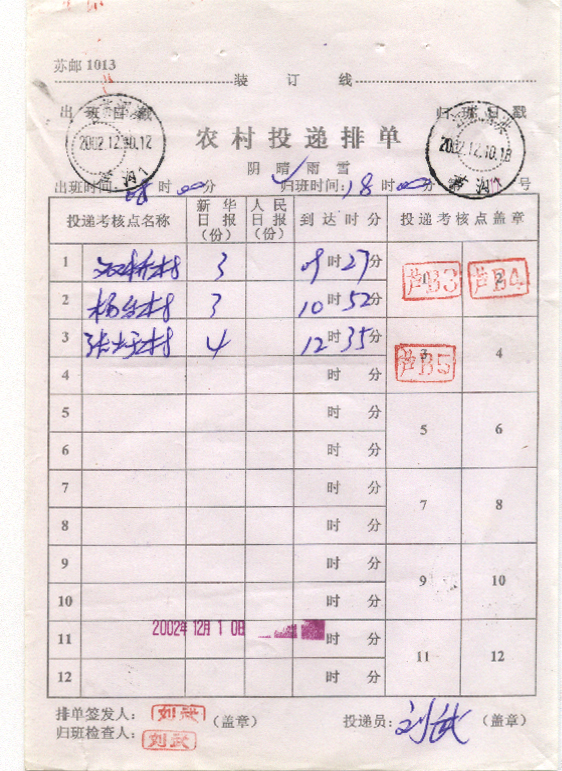 苏邮1013
装 订 线
出班日戳 归班日戳
2002.12.10.12 2002.12.10.18
农村投递排单
阴 晴 雨 雪
出班时间: 08时00分 归班时间: 18时00分 号
投递考核点名称 新华日报(份) 人民日报(份) 到达时分 投递考核点盖章
1 3 09时27分 1 芦B3 2 芦B4
2 3 10时52分
3 4 12时35分 3 芦B5 4
4 时 分
5 时 分 5 6
6 时 分
7 时 分 7 8
8 时 分
9 时 分 9 10
10 时 分
2002年12月10日
11 时 分 11 12
12 时 分
排单签发人: 刘武 (盖章) 投递员: 刘武 (盖章)
归班检查人: 刘武